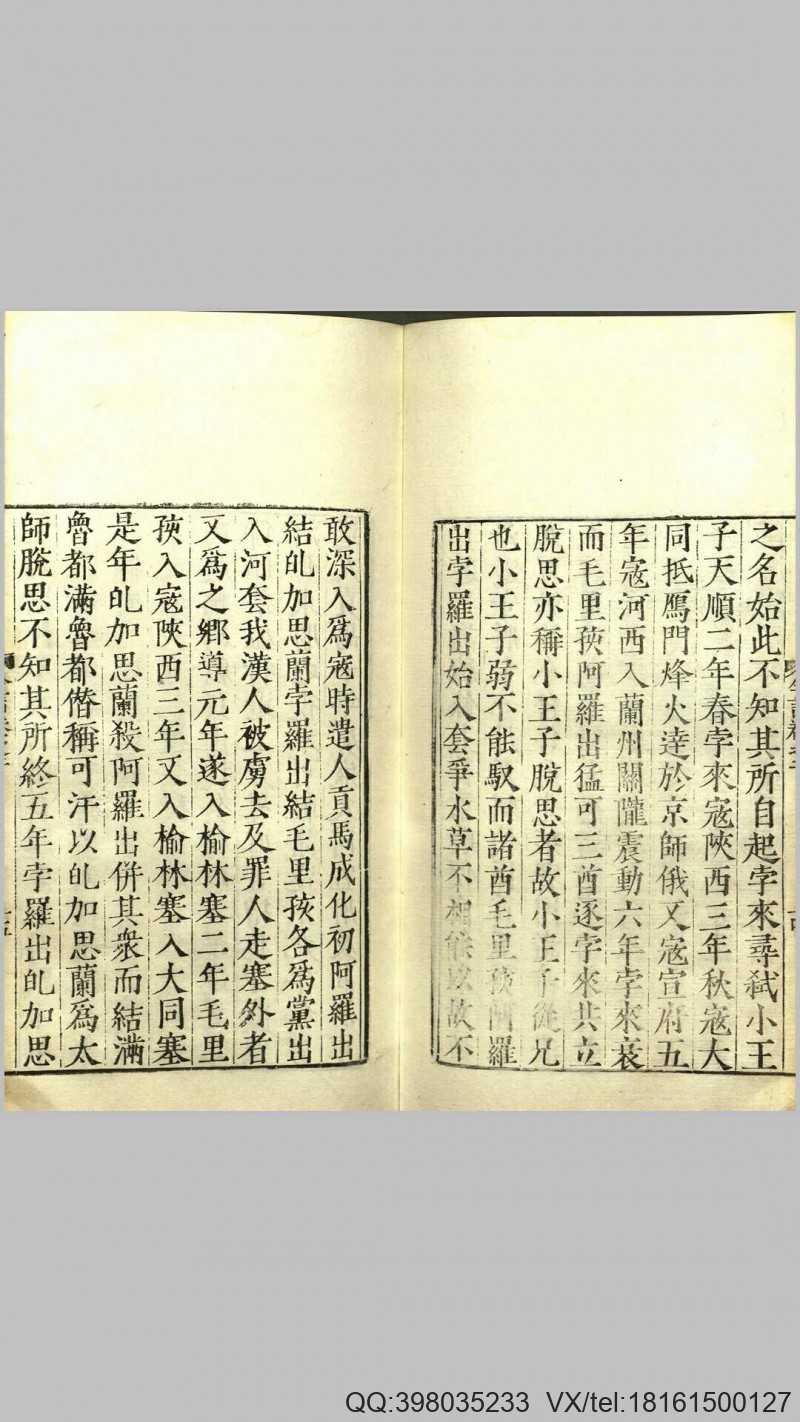 之名始此不知其所自起孛來尋弑小王
子天順二年春孛來寇陝西三年秋寇大
同抵鴈門烽火達於京師俄又寇宣府五
年寇河西入蘭州關隴震動六年孛來衰
而毛里孩阿羅出猛可三酋逐孛來共立
脫思亦稱小王子脫思者故小王子從兄
也小王子弱不能馭而諸酋毛里孩阿羅
出孛羅出始入套爭水草不相能以故不
敢深入爲寇時遣人貢馬成化初阿羅出
結癿加思蘭孛羅出結毛里孩各爲黨出
入河套我漢人被虜去及罪人走塞外者
又爲之鄉導元年遂入榆林塞二年毛里
孩入寇陝西三年又入榆林塞入大同塞
是年癿加思蘭殺阿羅出併其衆而結滿
魯都滿魯都僭稱可汗以癿加思蘭爲太
師脫思不知其所終五年孛羅出癿加思
QQ:398035233 VX/tel:18161500127